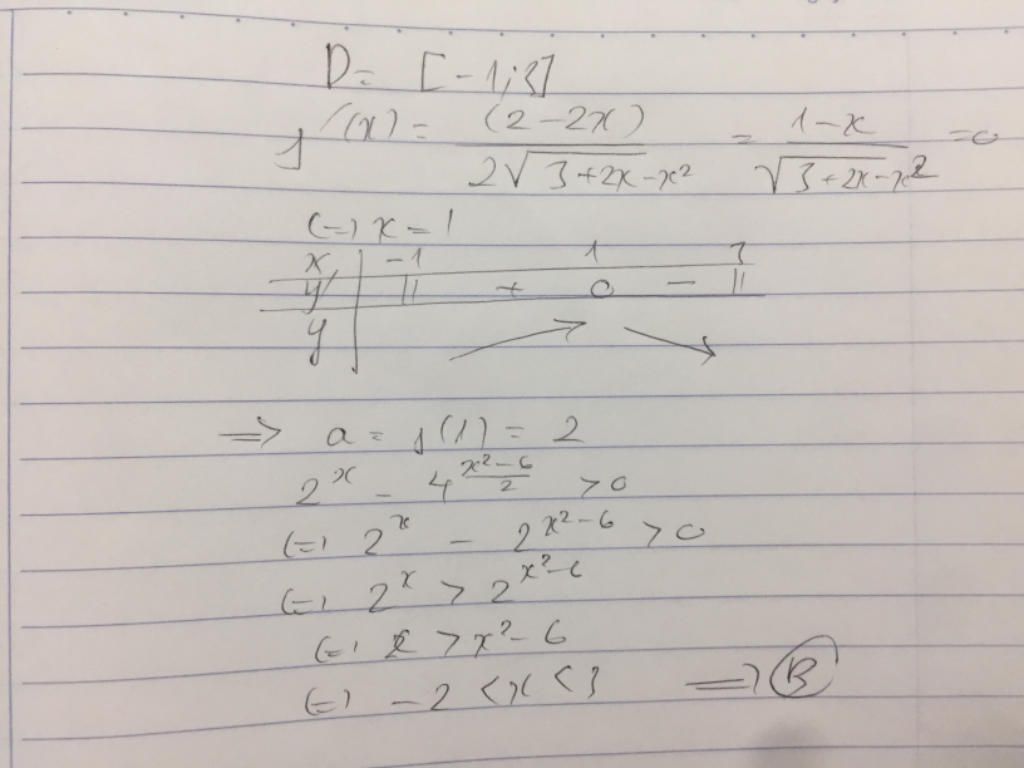 D = [-1;3]
f'(x) = (2-2x) / 2√(3+2x-x²) = 1-x / √(3+2x-x²) = 0
(=) x = 1
x | -1 1 3
y' | || + 0 - ||
y | ↗ ↘
=> a = f(1) = 2
2^x - 4^((x²-6)/2) > 0
(=) 2^x - 2^(x²-6) > 0
(=) 2^x > 2^(x²-6)
(=) x > x²-6
(=) -2 < x < 3 => B